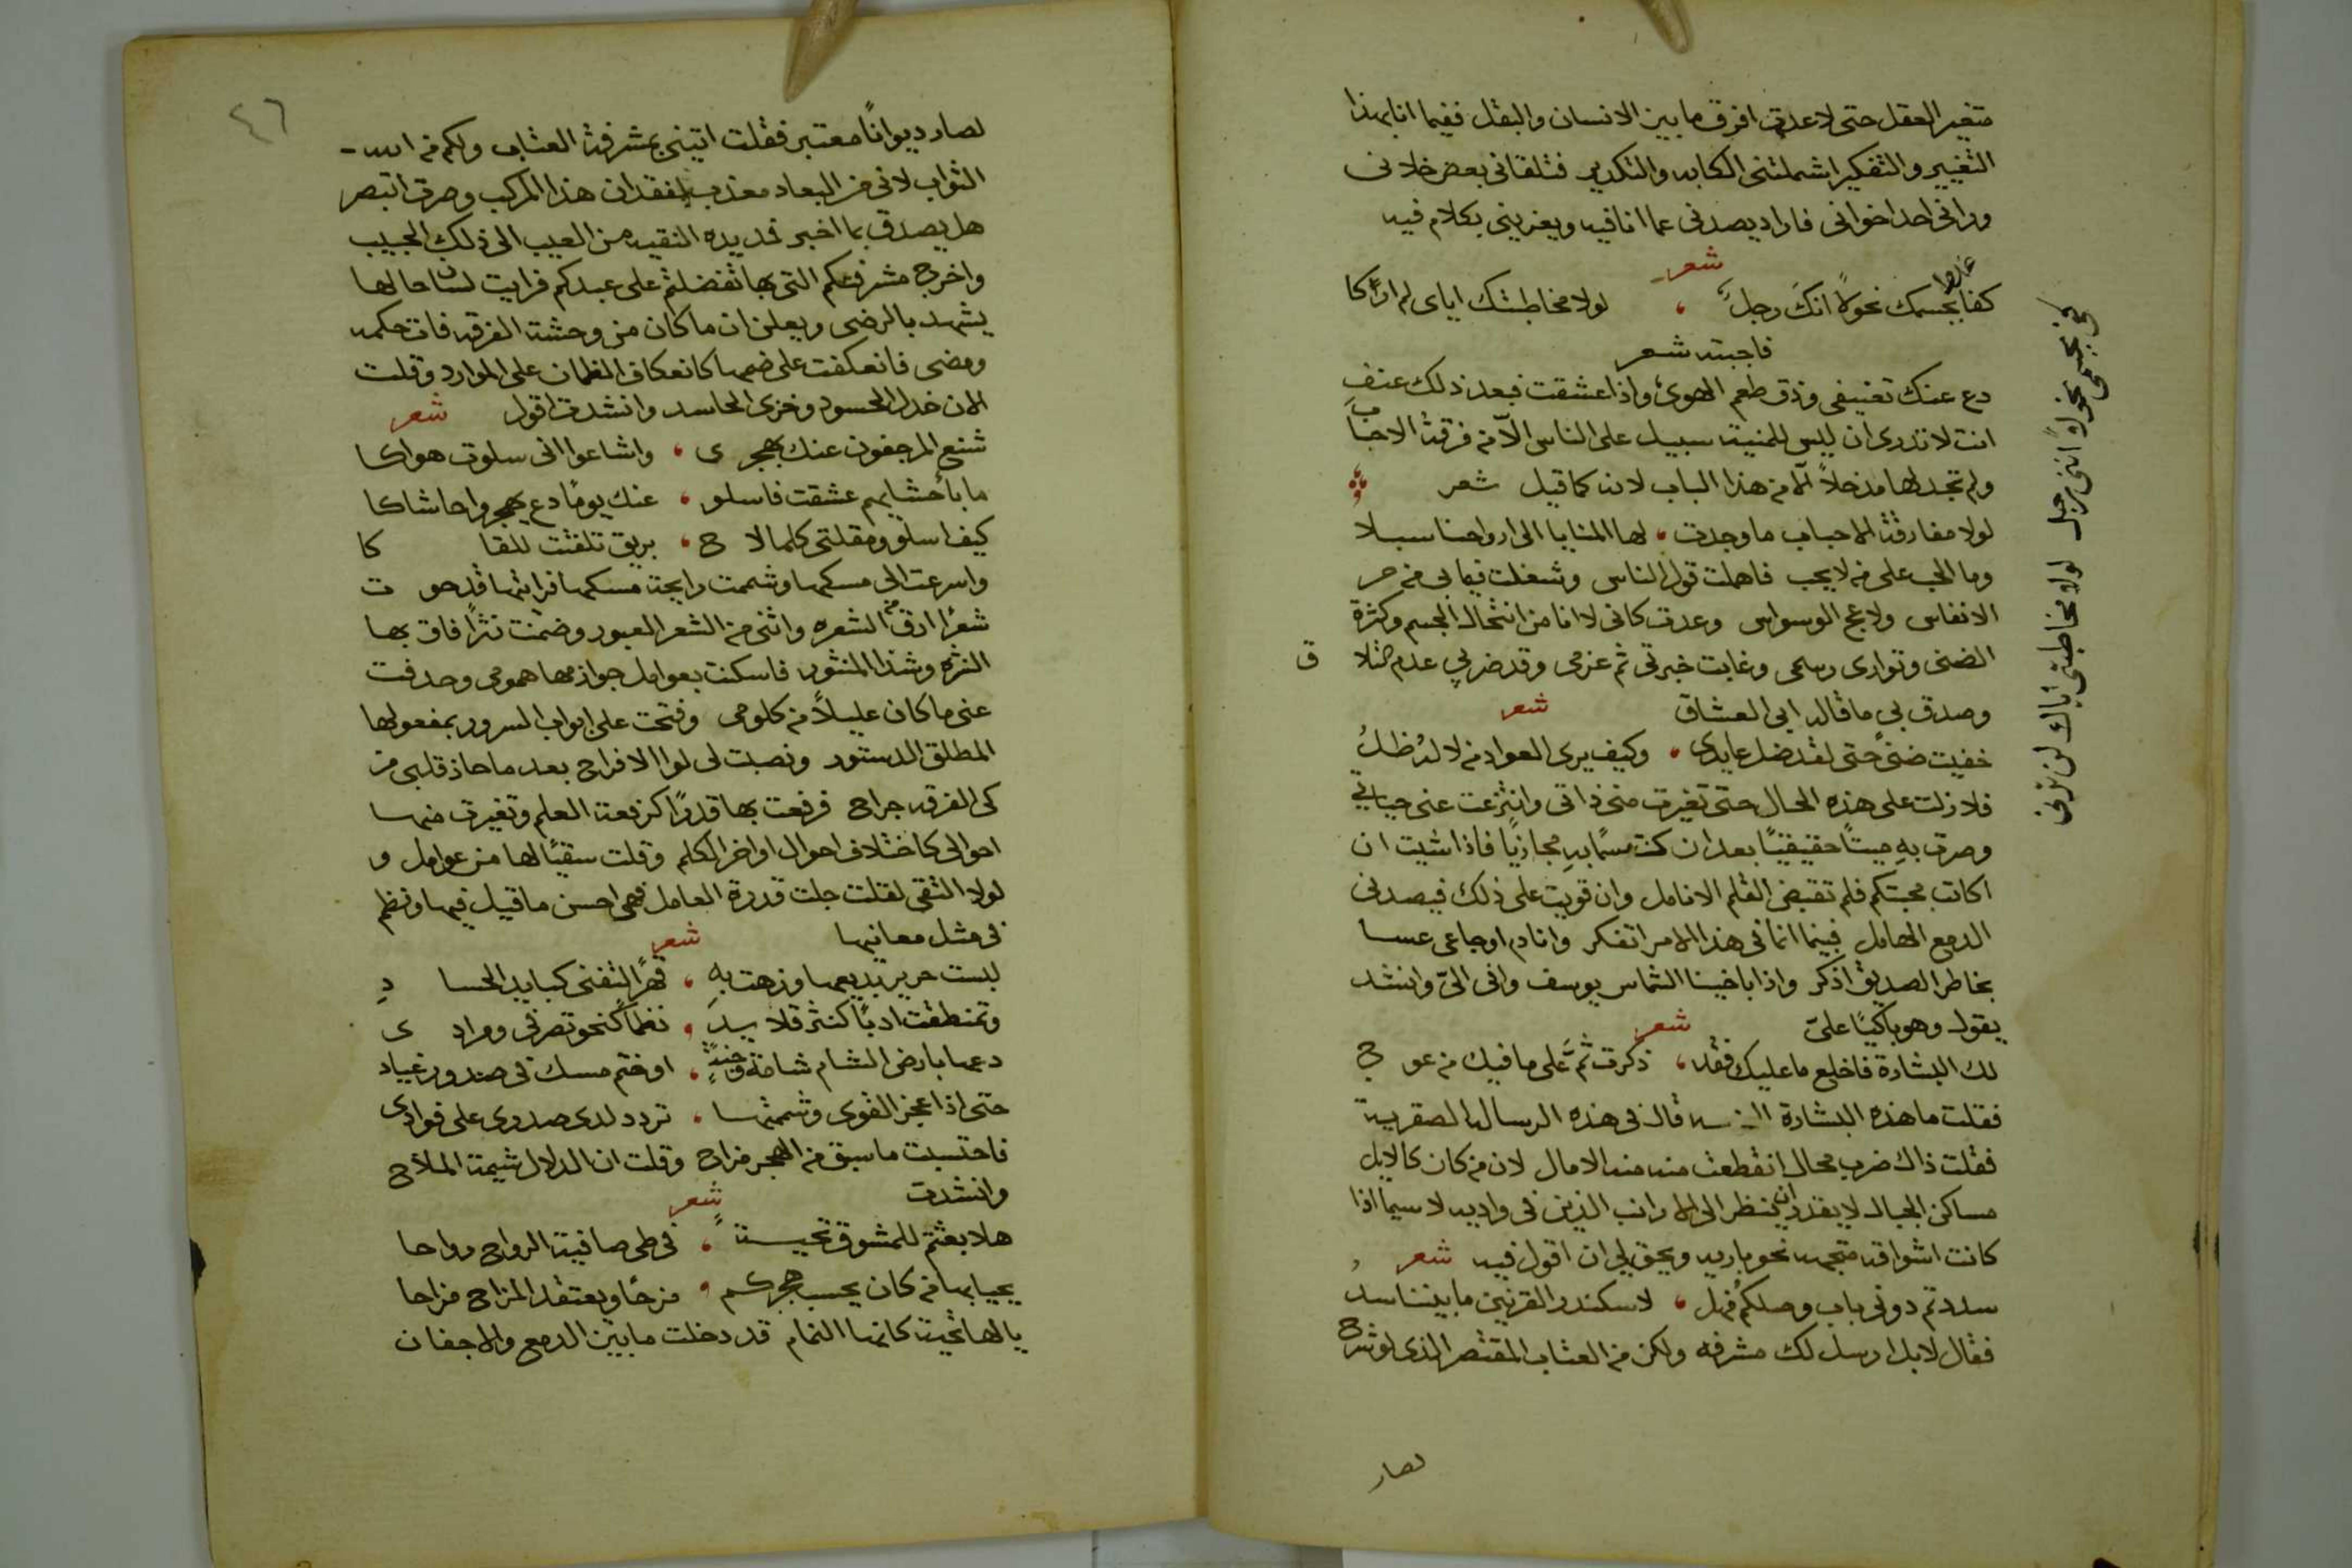 متغير العقل حتى لا عدت افرق ما بين الانسان والبقل ففيما انا بهذا
التغيير والتفكير اشملتني الكابه والتكدير فتلقاني بعض خلاني
وراني احد اخواني فاراد يصدني عما انا فيه ويعزيني بكلام فيه
شعر
كفا بجسمك نحولاً انكَ رجلٌ ، لولا مخاطبتك اياى لم اراكا
فاجبته شعر
دع عنك تعنيفى وذق طعم الهوى، واذا عشقت فبعد ذلك عنفِ
انت لا تدرى ان ليس للمنية سبيل على الناس الّا من فرقة الاحباب
ولم تجد لها مدخلاً الا من هذا الباب لانه كما قيل شعر
لولا مفارقة الاحباب ما وجدت ، لها المنايا الى ارواحنا سبلا
وما الحب على من لا يحب فاهملت قول الناس وشغلت فيما بى من حر
الانفاس ولاعج الوسواس وعدت كانى لا انا من انتحال الجسم وكثرة
الضنى وتوارى رسمى وغابت خبرتى ثم عزمى وقد ضر بي عدم التلاق
وصدق بي ما قاله ابى العشاق شعر
خفيت ضنىً حتى لقد ضل عايدى ، وكيف يرى العواد من لا لهُ ظلُ
فلا زلت على هذه الحال حتى تغيرت منى ذاتى وانتزعت عنى حياتي
وصرت بهِ ميتاً حقيقيّاً بعد ان كنت مسمّا بهِ مجازيّا فاذا شيت ان
اكاتب محبتكم فلم تقبض القلم الانامل وان قويت على ذلك فيصدنى
الدمع الهامل فبينما انا فى هذا الامر اتفكر وانادم اوجاعى عسا
بخاطر الصديق اذكر واذا باخينا الشماس يوسف وافى الىّ وانشد
يقول وهو باكيًا علىّ شعر
لك البشارة فاخلع ما عليك فقد ، ذكرت ثَمَّ على ما فيك من عوج
فقلت ما هذه البشارة قال فى هذه الرساله الصقريية
فقلت ذاك ضرب محال انقطعت منه منه الامال لان من كان كالابل
مساكن الجبال لا يقدر ان ينظر الى الارانب الذين فى واديه لا سيما اذا
كانت اشواقه متجهه نحو باريه ويحق لي ان اقول فيه شعر
سددتم دونى باب وصلكمُ فهل ، لاسكندر القرنين ما بيننا سد
فقال لا بل ارسل لك مشرفه ولكن من العتاب المقتصر الذى لو شرح
لصار
كفى بجسمى نحولاً اننى رجل لولا مخاطبتى اياك لم ترنى
٤٦
لصار ديوانًا معتبر فقلت اتينى بمشرفة العتاب ولكم من الله
الثواب لانى من البعاد معذب لفقدان هذا المركب وصرت اتبصر
هل يصدق بما اخبر فمد يده النقيه من العيب الى ذلك الجيب
واخرج مشرفتكم التى بها تفضلتم على عبدكم فرايت لسان حالها
يشهد بالرضى ويعلن ان ما كان من وحشة الفرقه فات حكمه
ومضى فانعكفت على ضمها كانعكاف الظمان على الموارد وقلت
الان خذل الحسود وخزى الحاسد وانشدت اقول شعر
شنع المرجفون عنك بهجرى ، واشاعوا انى سلوت هواكا
ما باحشايهم عشقت فاسلو ، عنك يومًا دع يهجروا حاشاكا
كيف اسلو ومقلتى كلما لاح ، بريق تلفتت للقاكا
واسرعت الى مسكها وشممت رايحة مسكها فرايتها قد حوت
شعرًا ارق من الشعره واثنى من الشعر العبور وضمنت نثرًا فاق بها
النثره وشذا المنثور فاسكنت بعوامل جوازمها همومى وحذفت
عنى ما كان عليلاً من كلومى وفتحت على ابواب السرور بمفعولها
المطلق الدستور ونصبت لى لوا الافراح بعد ما حاذ قلبى من
كى الفرقه جراح فرفعت بها قدرًا كرفعة العلم وتغيرت منها
احوالى كاختلاف احوال اواخر الكلم وقلت سقيًا لها من عوامل و
لولا التقى لقلت جلت قدرة العامل فهى احسن ما قيل فيها ونظم
فى مثل معانيها شعر
لبست حرير بديعها وزهت بهِ ، قهرًا لتفنى كبايد الحسادِ
وتمنطقت ادبًا كنثر قلايدٍ ، نظماً كنحو تصرفى ومرادى
دعها بارض الشام شامة وجنةٍ ، او ختم مسك فى صدور غياد
حتى اذا عجز القوى وشممتها ، تردد لدى صدورى على فوادى
فاحتسبت ما سبق من الهجر مزاح وقلت ان الدلال شيمة الملاح
وانشدت شعر
هلا بعثتم للمشوق تحيةً ، فى طى صافية الرواح رواحا
يحيا بها من كان يحسب هجركم ، مزحًا ويعتقد المزاح مزاحا
يا لها تحية كانها النمام قد دخلت ما بين الدمع والاجفان